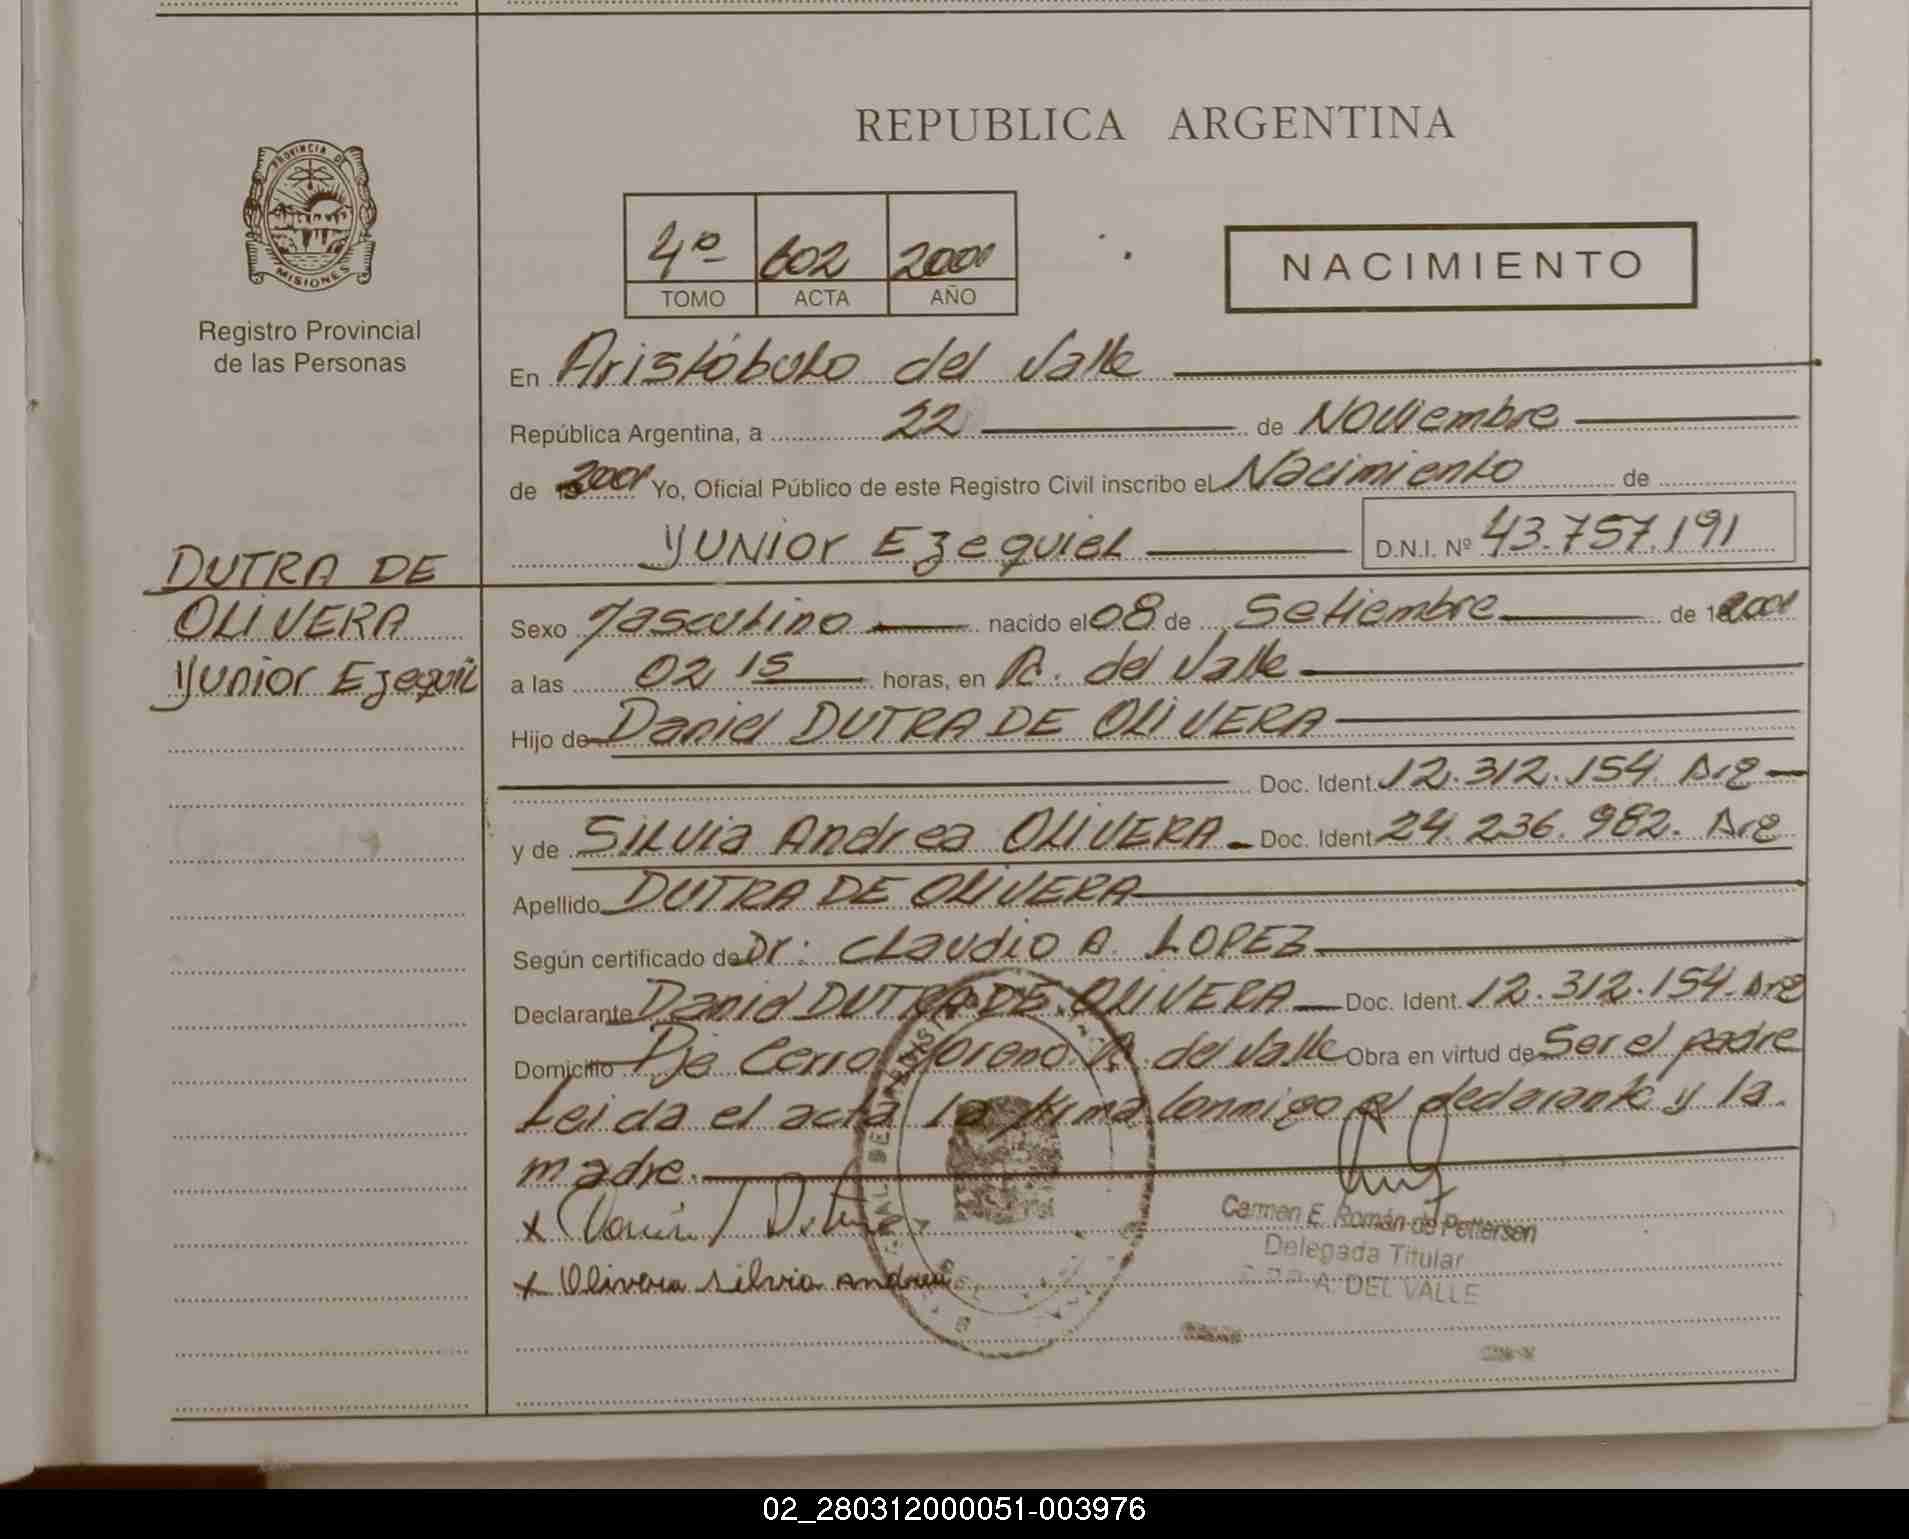 REPUBLICA ARGENTINA
PROVINCIA DE
MISIONES
Registro Provincial
de las Personas
4º 602 2001
TOMO ACTA AÑO
NACIMIENTO
En Aristóbulo del Valle
República Argentina, a 22 de Noviembre
de 2001 Yo, Oficial Público de este Registro Civil inscribo el Nacimiento de
YUNior Ezequiel D.N.I. Nº 43.757.191
DUTRA DE
OLIVERA
Yunior Ezequiel
Sexo Masculino nacido el 08 de Setiembre de 2001
a las 02 15 horas, en A. del Valle
Hijo de Daniel DUTRA DE OLIVERA
Doc. Ident. 12.312.154 Arg
y de Silvia Andrea OLIVERA Doc. Ident. 24.236.982. Arg
Apellido DUTRA DE OLIVERA
Según certificado de Dr: Claudio A. LOPEZ
Declarante Daniel DUTRA DE OLIVERA Doc. Ident. 12.312.154 Arg
Domicilio Pje Cerro Moreno A. del Valle Obra en virtud de Ser el padre
Leida el acta la firma conmigo el declarante y la
madre.
x
x Olivera Silvia Andrea
Carmen E. Román de Pettersen
Delegada Titular
A. DEL VALLE
02_280312000051-003976